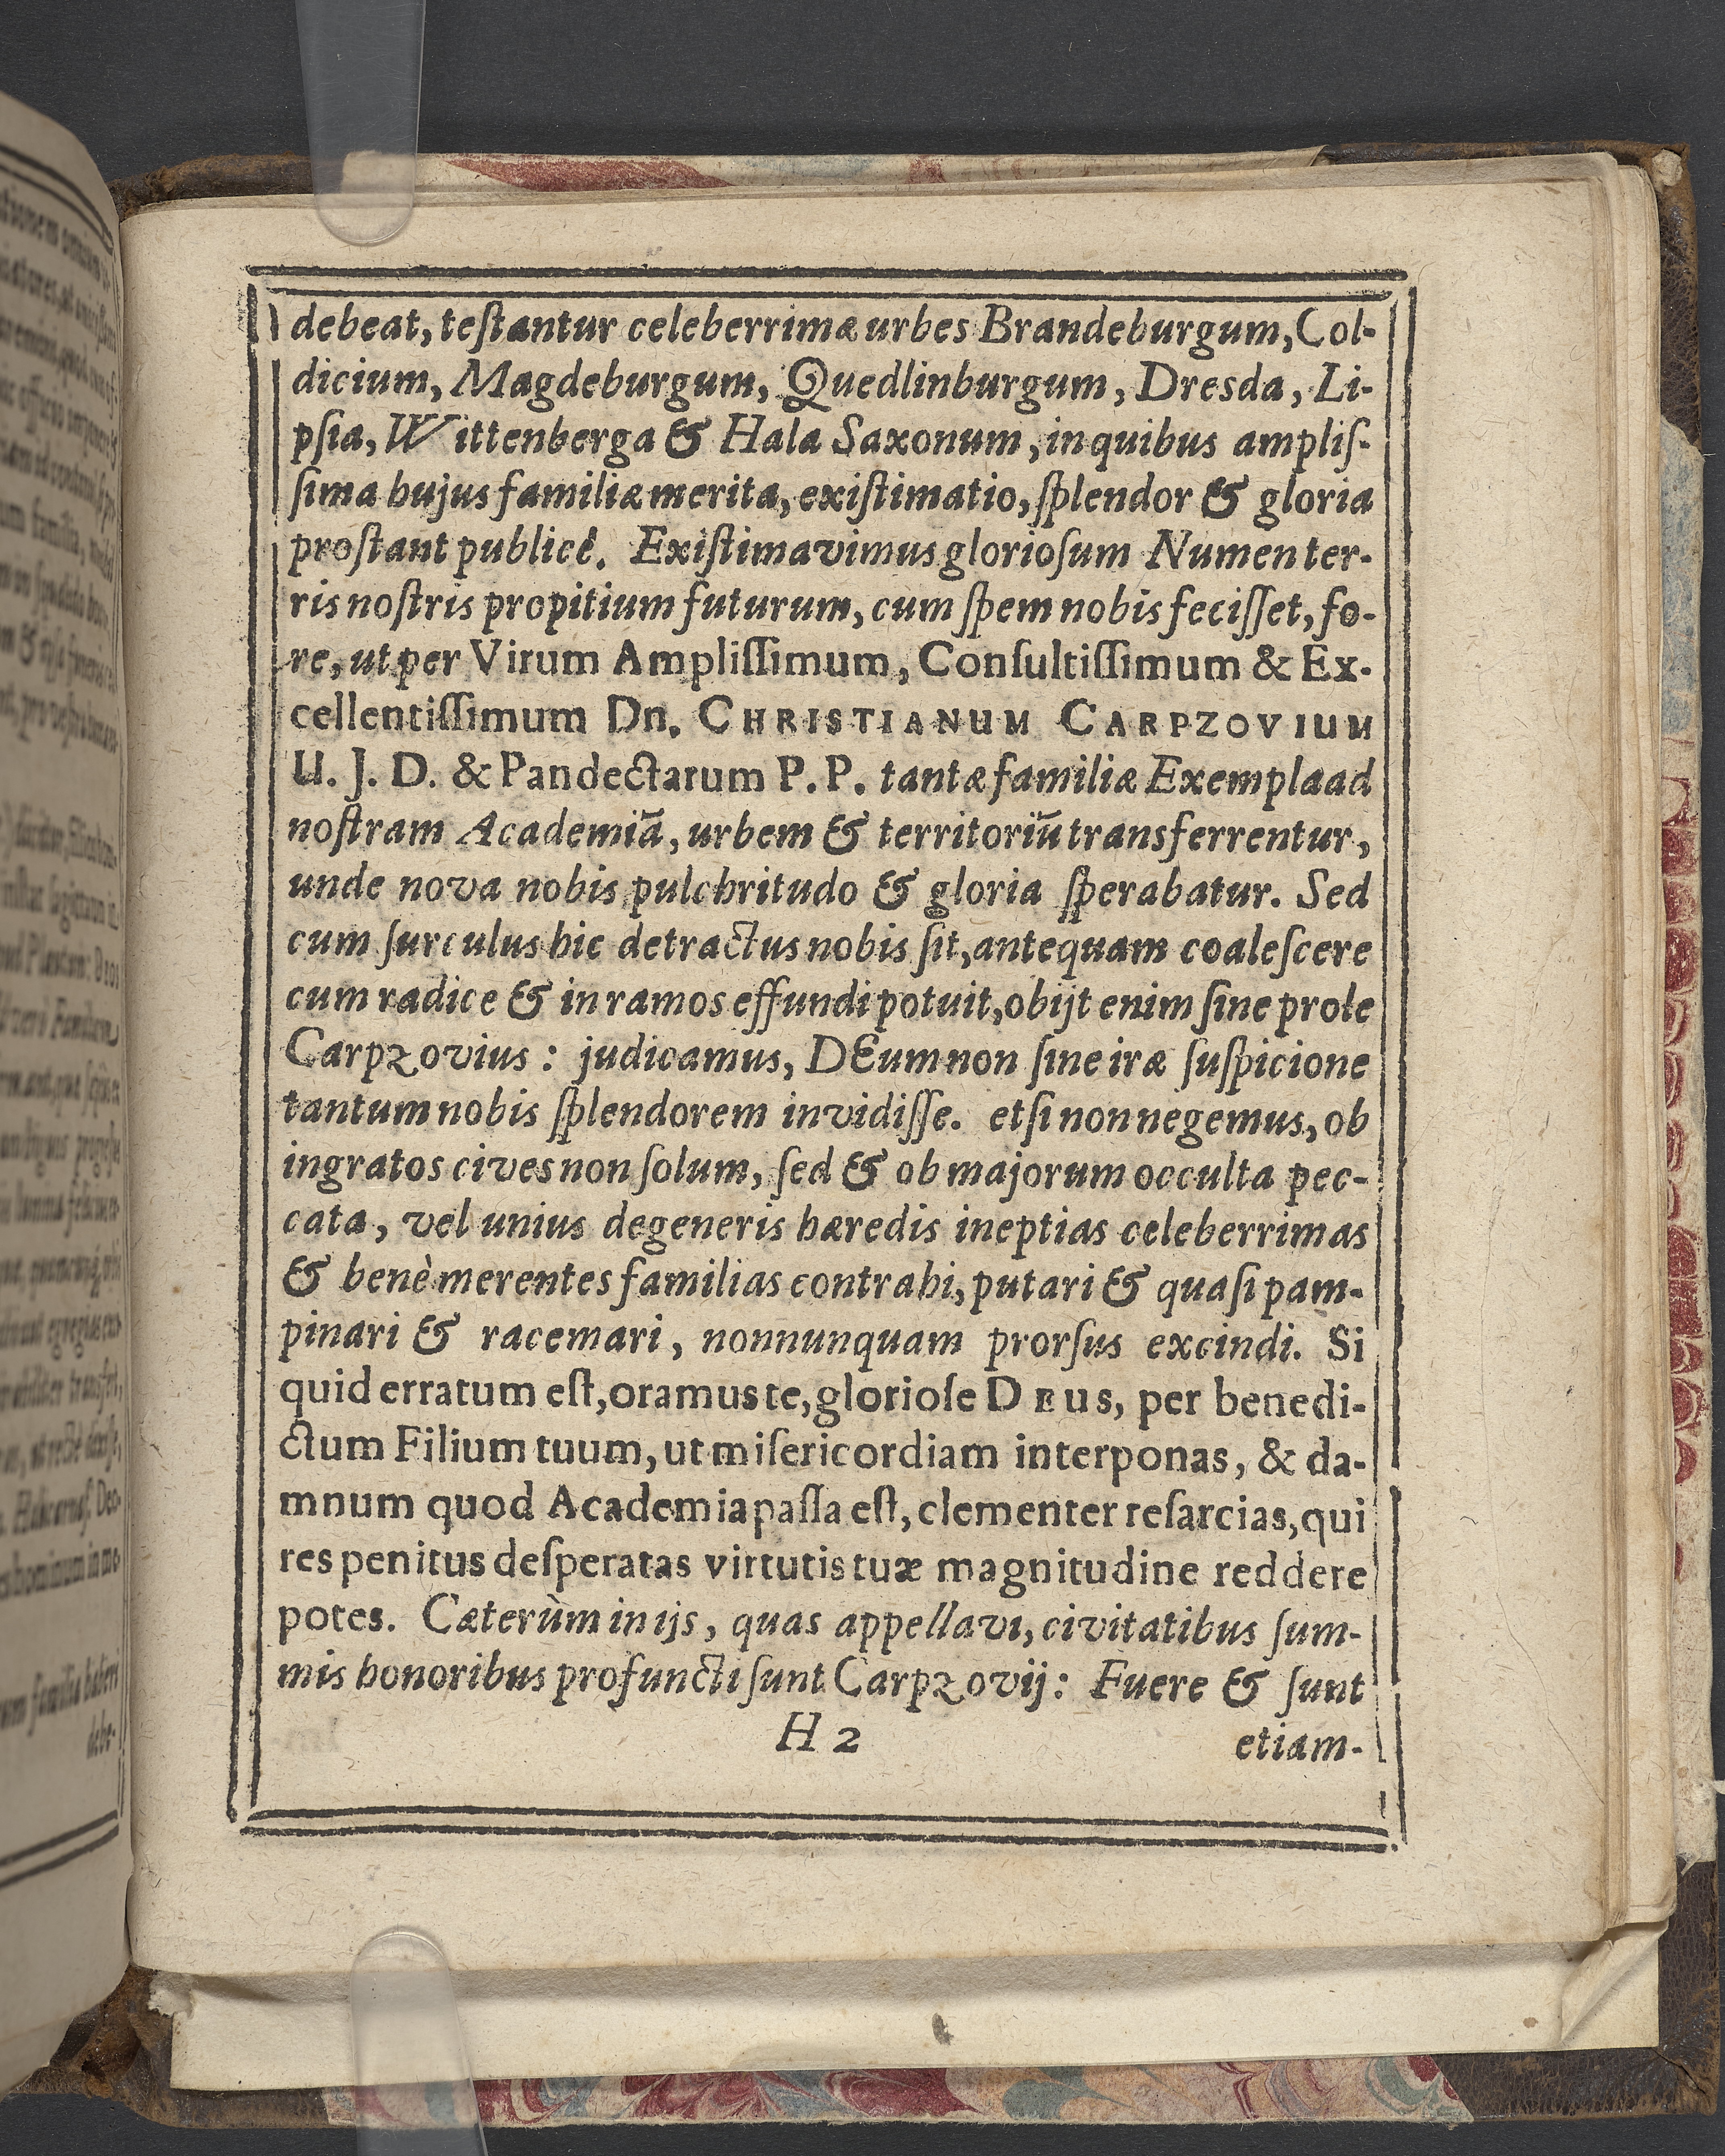 debeat, teſtantur celeberrimæ urbes Brandeburgum, Col-
dicium, Magdeburgum, Quedlinburgum, Dresda, Li-
pſia, Wittenberga & Hala Saxonum, in quibus ampliſ-
ſima hujus familiæ merita, exiſtimatio, ſplendor & gloria
proſtant publicè. Exiſtimavimus glorioſum Numen ter-
ris noſtris propitium futurum, cum ſpem nobis feciſſet, fo-
re, ut per Virum Ampliſſimum, Conſultiſſimum & Ex-
cellentiſſimum Dn. CHRISTIANUM CARPZOVIUM
U. J. D. & Pandectarum P. P. tantæ familiæ Exempla ad
noſtram Academiā, urbem & territoriū transferrentur,
unde nova nobis pulchritudo & gloria ſperabatur. Sed
cum ſurculus hic detractus nobis ſit, antequam coaleſcere
cum radice & in ramos effundi potuit, obijt enim ſine prole
Carpzovius: judicamus, DEum non ſine iræ ſuſpicione
tantum nobis ſplendorem invidiſſe. etſi non negemus, ob
ingratos cives non ſolum, ſed & ob majorum occulta pec-
cata, vel unius degeneris hæredis ineptias celeberrimas
& benè merentes familias contrahi, putari & quaſi pam-
pinari & racemari, nonnunquam prorſus excindi. Si
quid erratum eſt, oramus te, glorioſe DEUS, per benedi-
ctum Filium tuum, ut miſericordiam interponas, & da-
mnum quod Academia paſſa eſt, clementer reſarcias, qui
res penitus deſperatas virtutis tuæ magnitudine reddere
potes. Cæterùm in ijs, quas appellavi, civitatibus ſum-
mis honoribus profuncti ſunt Carpzovij: Fuere & ſunt
H 2
etiam-